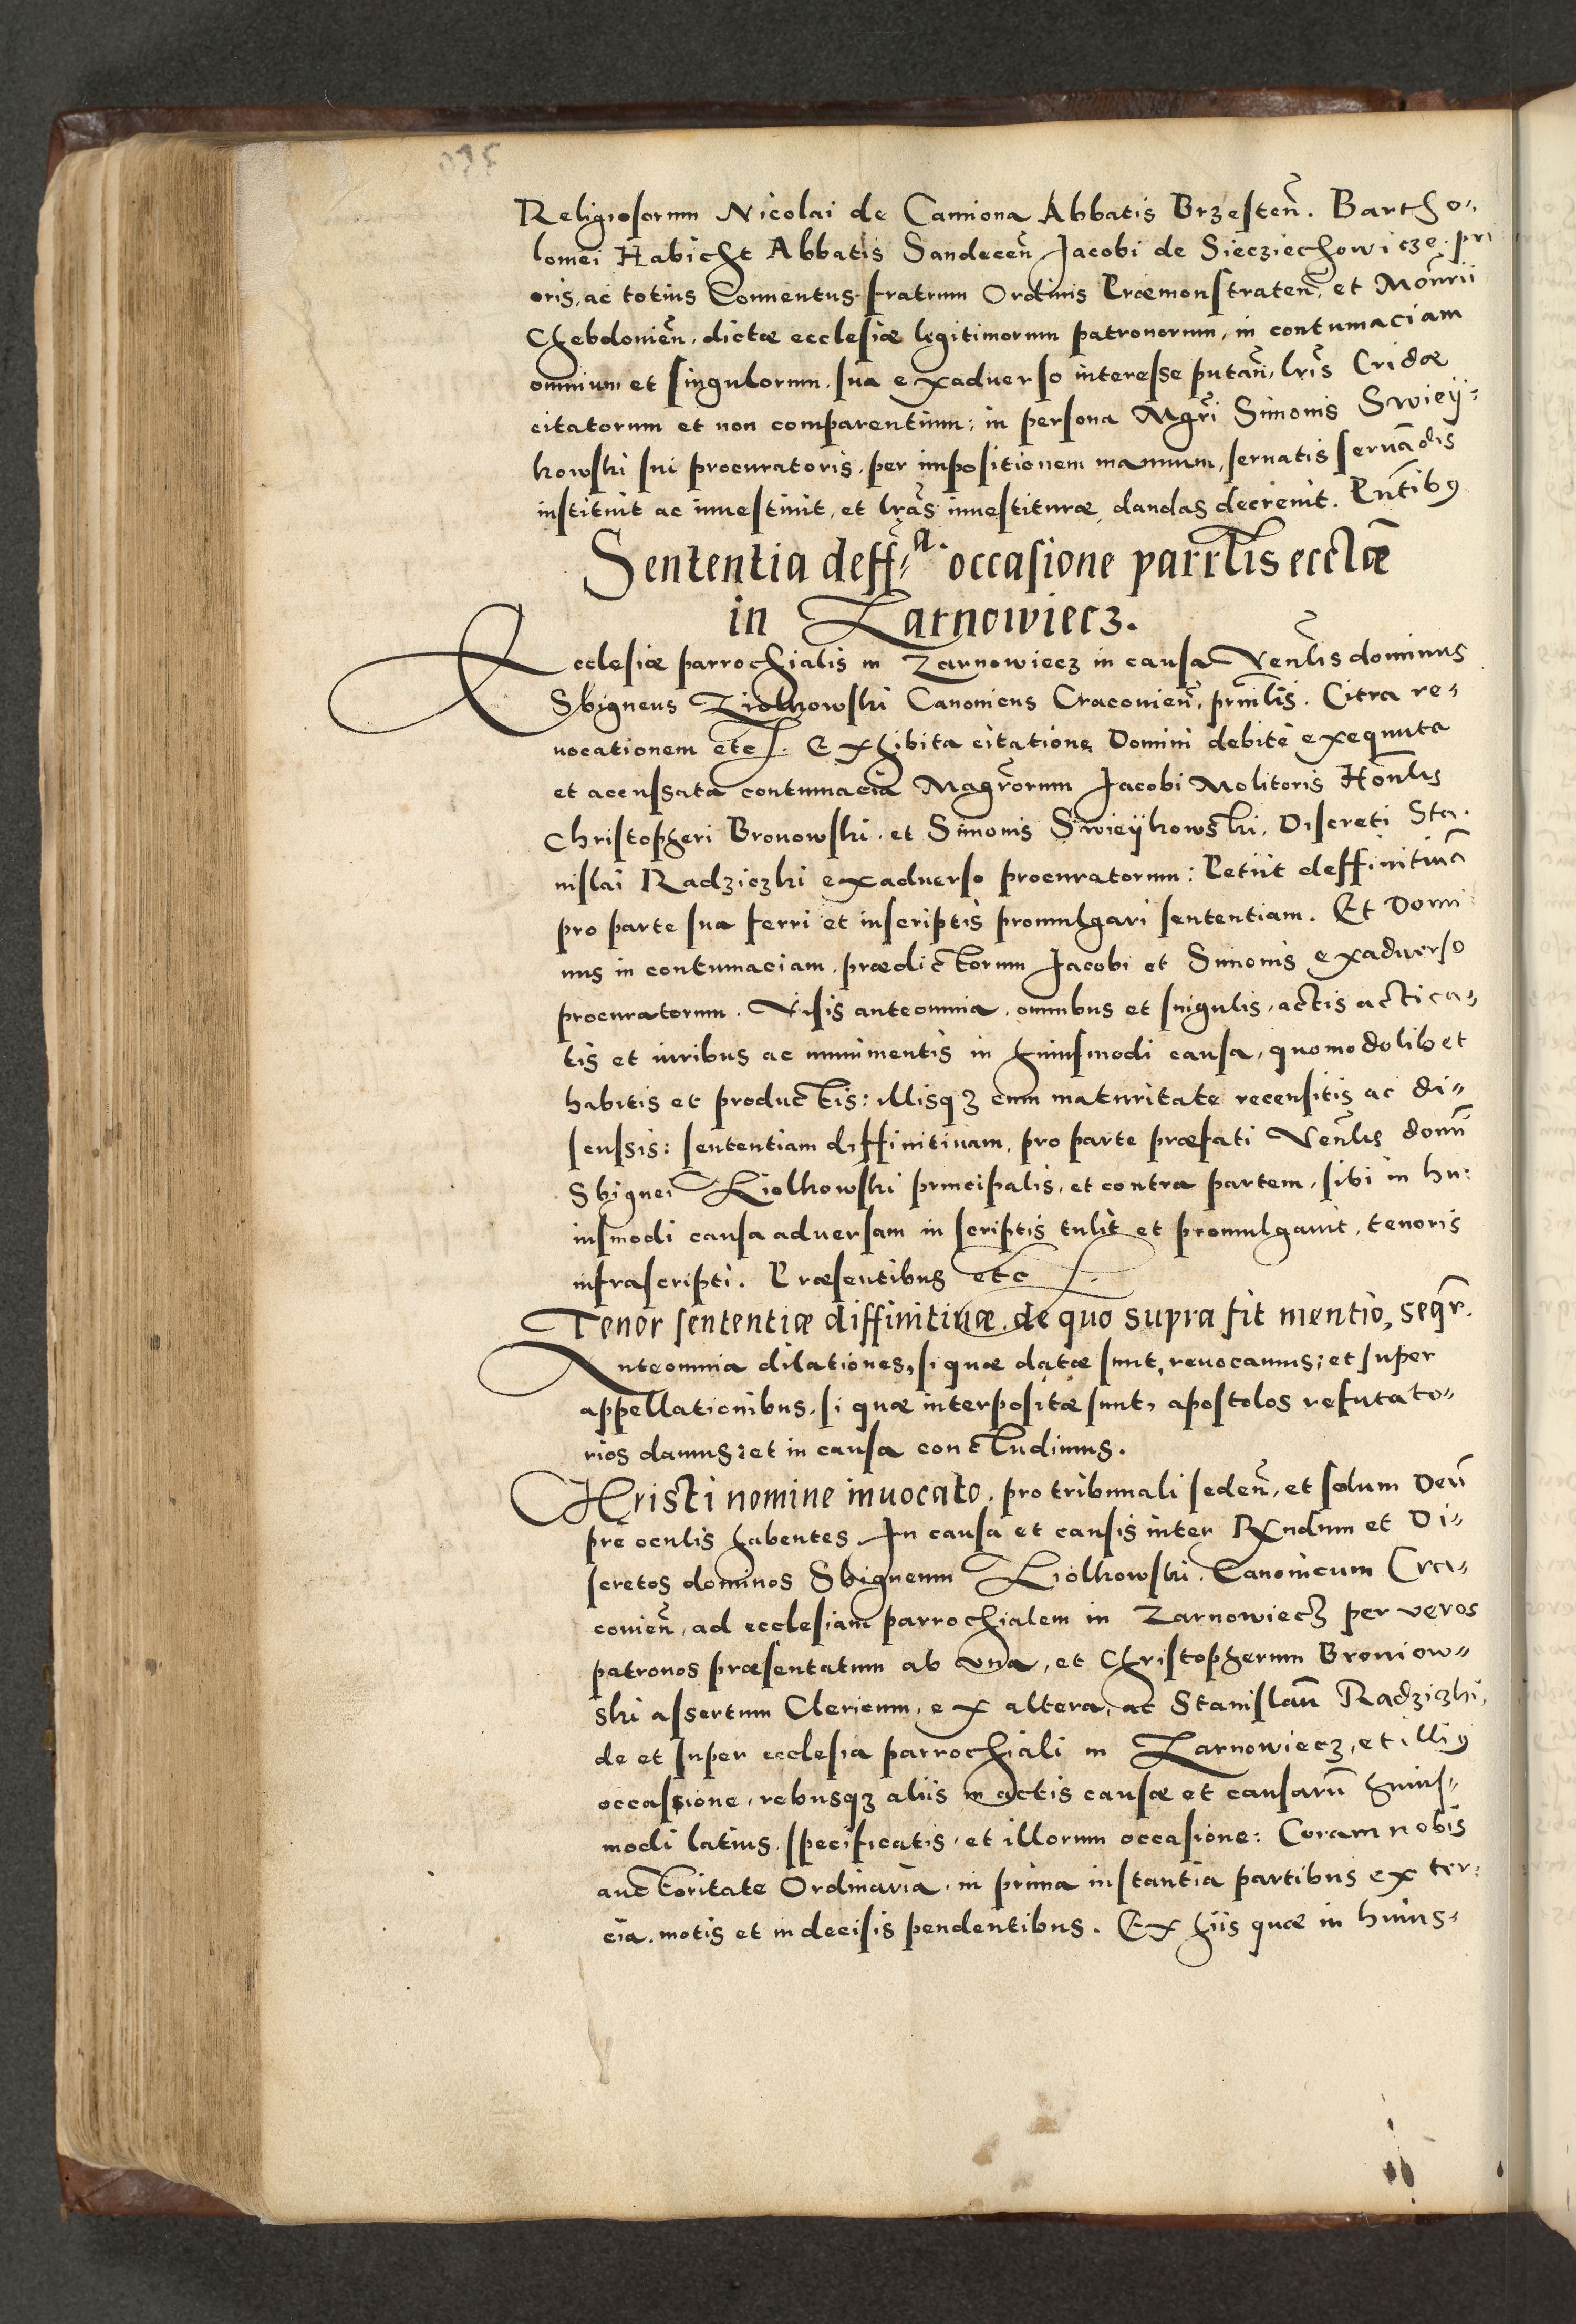 Religiosorum Nicolai de Camiona Abbatis Brzesteñ. Bartho-
lomei Habicht Abbatis Sandeceñ Jacobi de Siecziechowicze. pri
oris, ac totius Conuentus fratrum Ordinis Præmonstrateñ, et Moñrii
Chebdovieñ. dictæ ecclesiæ legitimorum patronorum, in contumaciam
omnium et singulorum, sua exaduerso interesse putañ, lr̃is Cridæ
citatorum et non comparentium: in persona Mgr̃i Simonis Swieÿ-
kowski sui procuratoris, per impositionem manuum, seruatis seruãdis
instituit ac inuestiuit, et lr̃as inuestituræ dandas decreuit. Pñtibꝯ
Sententia deff.ª occasione parrl̃is eccl̃æ
in Zarnowiecz.
Ecclesiæ parrochialis in Zarnowiecz in causa Veñlis dominus
Sbigneus Ziolkowski Canonicus Cracovieñ, prin̄l̃is. Citra re-
uocationem etc. Exhibita citatione Domini debite exequuta
et accussata contumacia Magr̃orum Jacobi Molitoris Hoñlis
Christopheri Bronowski, et Simonis Swieÿkowski, Discreti Sta-
nislai Radziczki exaduerso procuratorum: Petiit deffinitiuã
pro parte sua ferri et inscriptis promulgari sententiam. Et Domi
nus in contumaciam prædictorum Jacobi et Simonis exaduerso
procuratorum. Visis anteomnia, omnibus et singulis, actis actica-
tis et iuribus ac munimentis in huiusmodi causa, quomodolibet
habitis et productis: illisqȝ cum maturitate recensitis ac di-
scussis: sententiam diffinitiuam, pro parte præfati Veñlis domĩ
Sbignei Ziolkowski principalis, et contra partem, sibi in hu-
iusmodi causa aduersam in scriptis tulit et promulgauit, tenoris
infrascripti. Præsentibus etc.
Tenor sententiæ diffinitiuæ, de quo supra fit mentio, seqr̃.
Anteomnia dilationes, si quæ datæ sunt, reuocamus; et super
appellationibus, si quæ interpositæ sunt, apostolos refutato-
rios damus: et in causa concludimus.
CHristi nomine inuocato, pro tribunali sedeñ, et solum Deũ
præ oculis habentes, In causa et causis inter Rx̃ndum et Di-
scretos dominos Sbigneum Ziolkowski, Canonicum Cra-
covieñ, ad ecclesiam parrochialem in Zarnowiecz per veros
patronos præsentatum ab vna, et Christopherum Broniow-
ski assertum Clericum, ex altera, ac Stanislaũ Radziczki,
de et super ecclesia parrochiali in Zarnowiecz, et illiꝯ
occassione, rebusqȝ aliis in actis causæ et causarũ huius-
modi latius specificatis, et illorum occasione: Coram nobis
auctoritate Ordinaria, in prima instantia partibus ex ter-
cia, motis et indecisis pendentibus. Ex hiis quæ in huius-